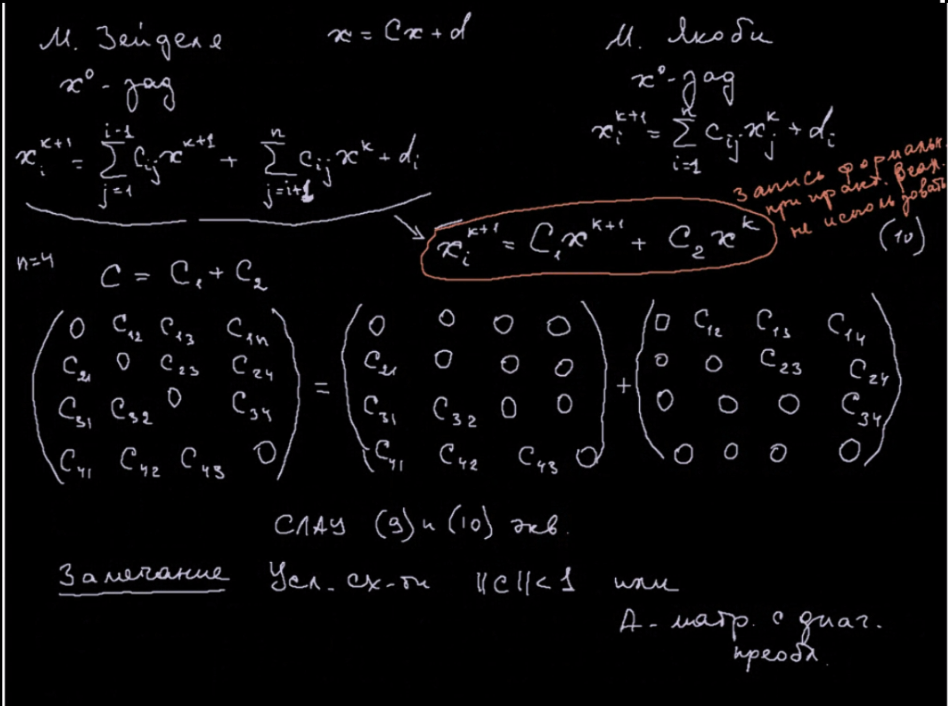 М. Зейделя x = Cx + d М. Якоби
x⁰ - зад x⁰ - зад
x_i^{k+1} = ∑_{j=1}^{i-1} c_{ij} x^{k+1} + ∑_{j=i+1}^{n} c_{ij} x^k + d_i x_i^{k+1} = ∑_{i=1}^{n} c_{ij} x_j^k + d_i
Запись формальн.
при практ.
не использовать
x_i^{k+1} = C_1 x^{k+1} + C_2 x^k (10)
n=4 C = C_1 + C_2
0 C_{12} C_{13} C_{1n} 0 0 0 0 0 C_{12} C_{13} C_{14}
C_{21} 0 C_{23} C_{24} C_{21} 0 0 0 0 0 C_{23} C_{24}
= +
C_{31} C_{32} 0 C_{34} C_{31} C_{32} 0 0 0 0 0 C_{34}
C_{41} C_{42} C_{43} 0 C_{41} C_{42} C_{43} 0 0 0 0 0
СЛАУ (9) и (10) экв.
Замечание Усл. сх-ти ||C|| < 1 или
A - матр. с диаг.
преобл.